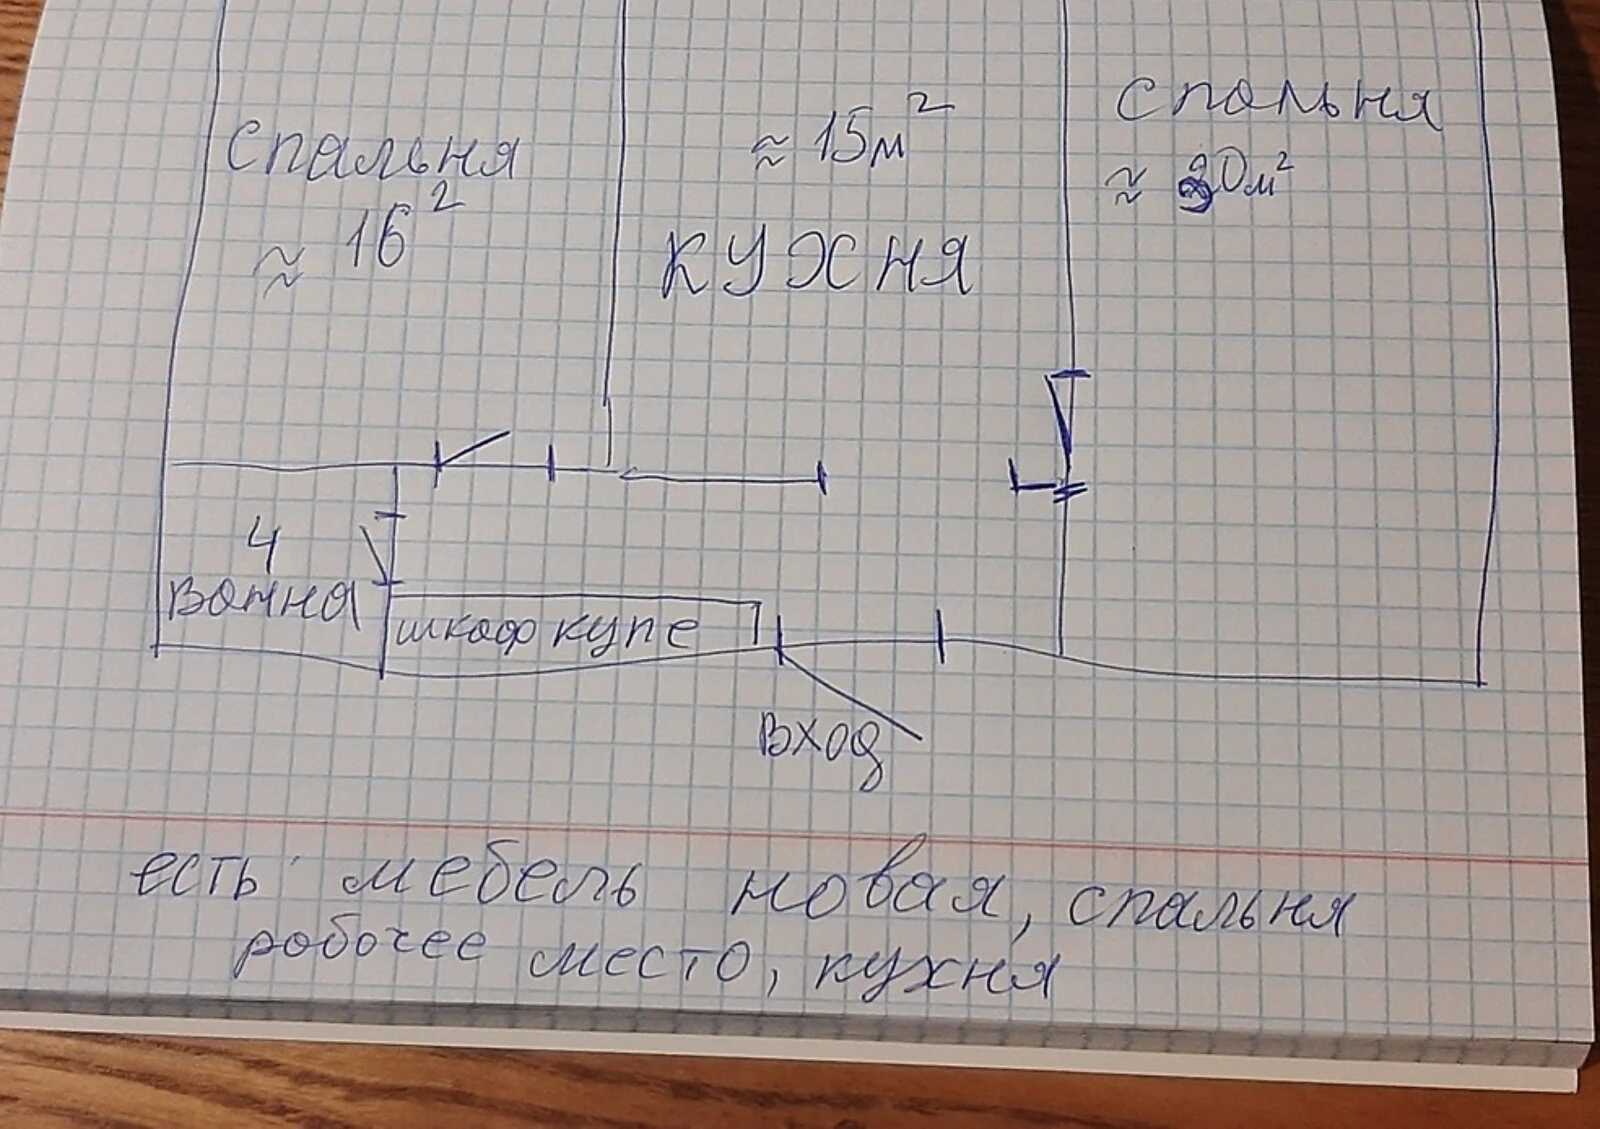 спальня
≈ 16²
≈ 15м²
кухня
спальня
≈ 20м²
4
ванна
шкаф купе
вход
есть мебель новая, спальня
рабочее место, кухня